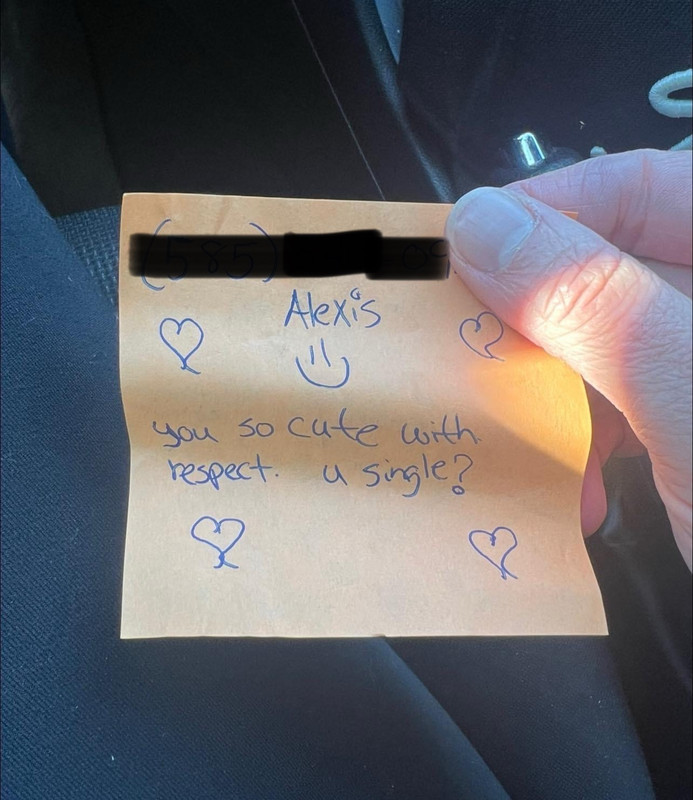 Alexis
you so cute with
respect. u single?